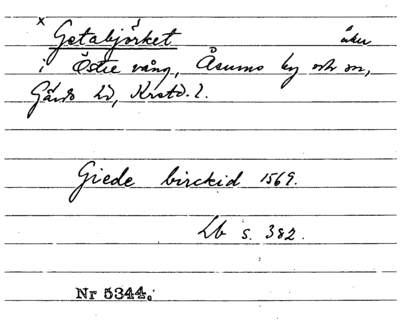 x Getabjörket åker
i Östre vång, Åsums by och sn,
Gärds hd, Krstd. l.
Giede birckid 1569.
Lb s. 382.
Nr 5344.